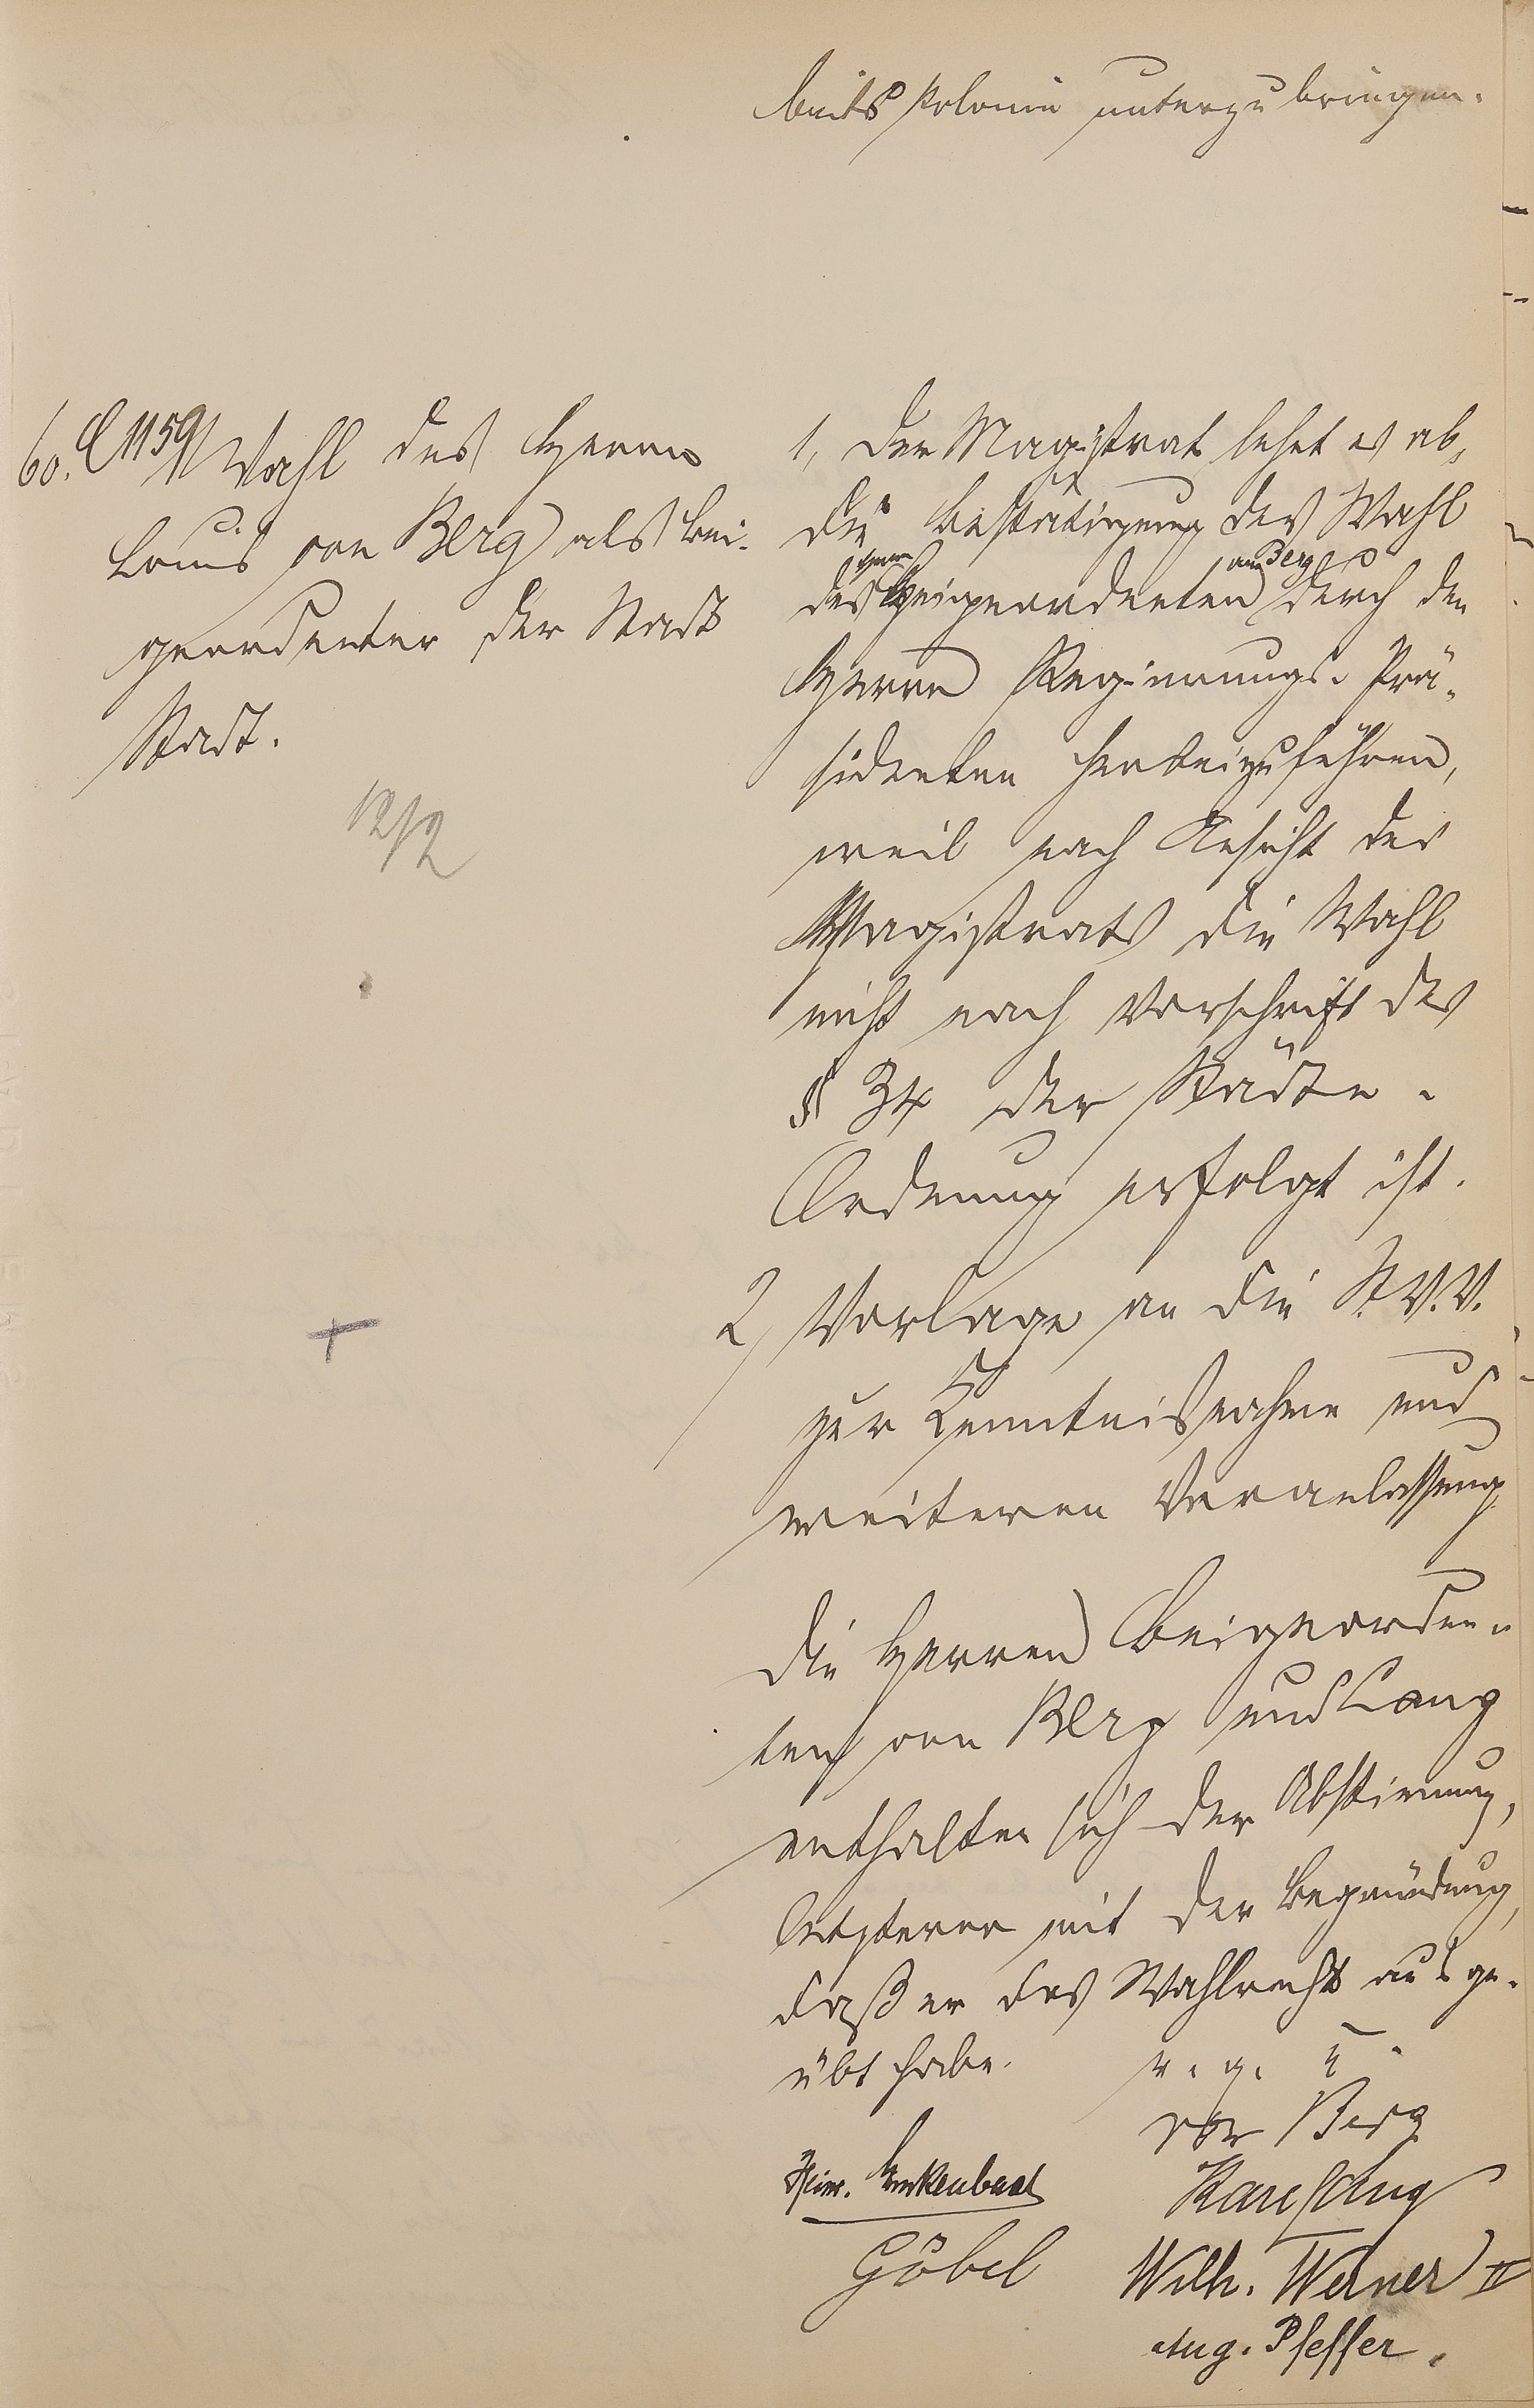 beits Kolonie unterzubringen.
60. C 1159 Wahl des Herrn
Louis von Berg als Bei-
geordneter der Stadt
Stadt.
12/2
1, Der Magistrat lehnt es ab,
die Bestätigung der Wahl
des Herrn Beigeordneten von Berg durch den
Herrn Regierungs-Prä-
sidenten herbeizuführen,
weil nach Ansicht des
Magistrats die Wahl
nicht nach Vorschrift des
§ 34 der Städte-
Ordnung erfolgt ist.
2, Vorlage an die St.V.V.
zur Kenntnisnahme und
weiteren Veranlassung
Die Herren Beigeordne-
ten von Berg und Lang
enthalten sich der Abstimmung,
letzterer mit der Begründung,
daß er das Wahlrecht ausge-
übt habe.
v. g. u.
von Berg
Karl Lang
Göbel
Wilh. Werner II
Aug. Pfeffer.